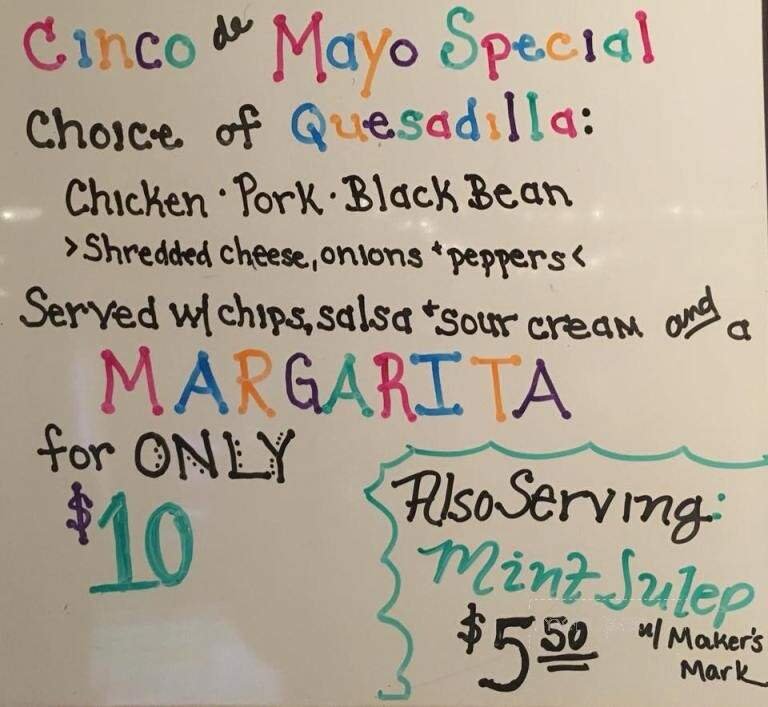 Cinco de Mayo Special
Choice of Quesadilla:
Chicken · Pork · Black Bean
>Shredded cheese, onions + peppers<
Served w/ chips, salsa + sour cream and a
MARGARITA
for ONLY
$10
Also Serving:
Mint Julep
$5.50
w/ Maker's
Mark